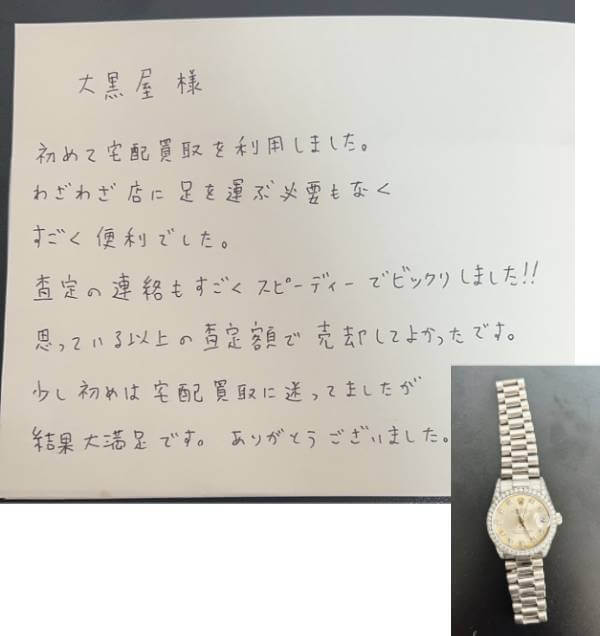 大黒屋 様
初めて宅配買取を利用しました。
わざわざ店に足を運ぶ必要もなく
すごく便利でした。
査定の連絡もすごくスピーディーでビックリしました!!
思っている以上の査定額で売却してよかったです。
少し初めは宅配買取に迷ってましたが
結果大満足です。ありがとうございました。